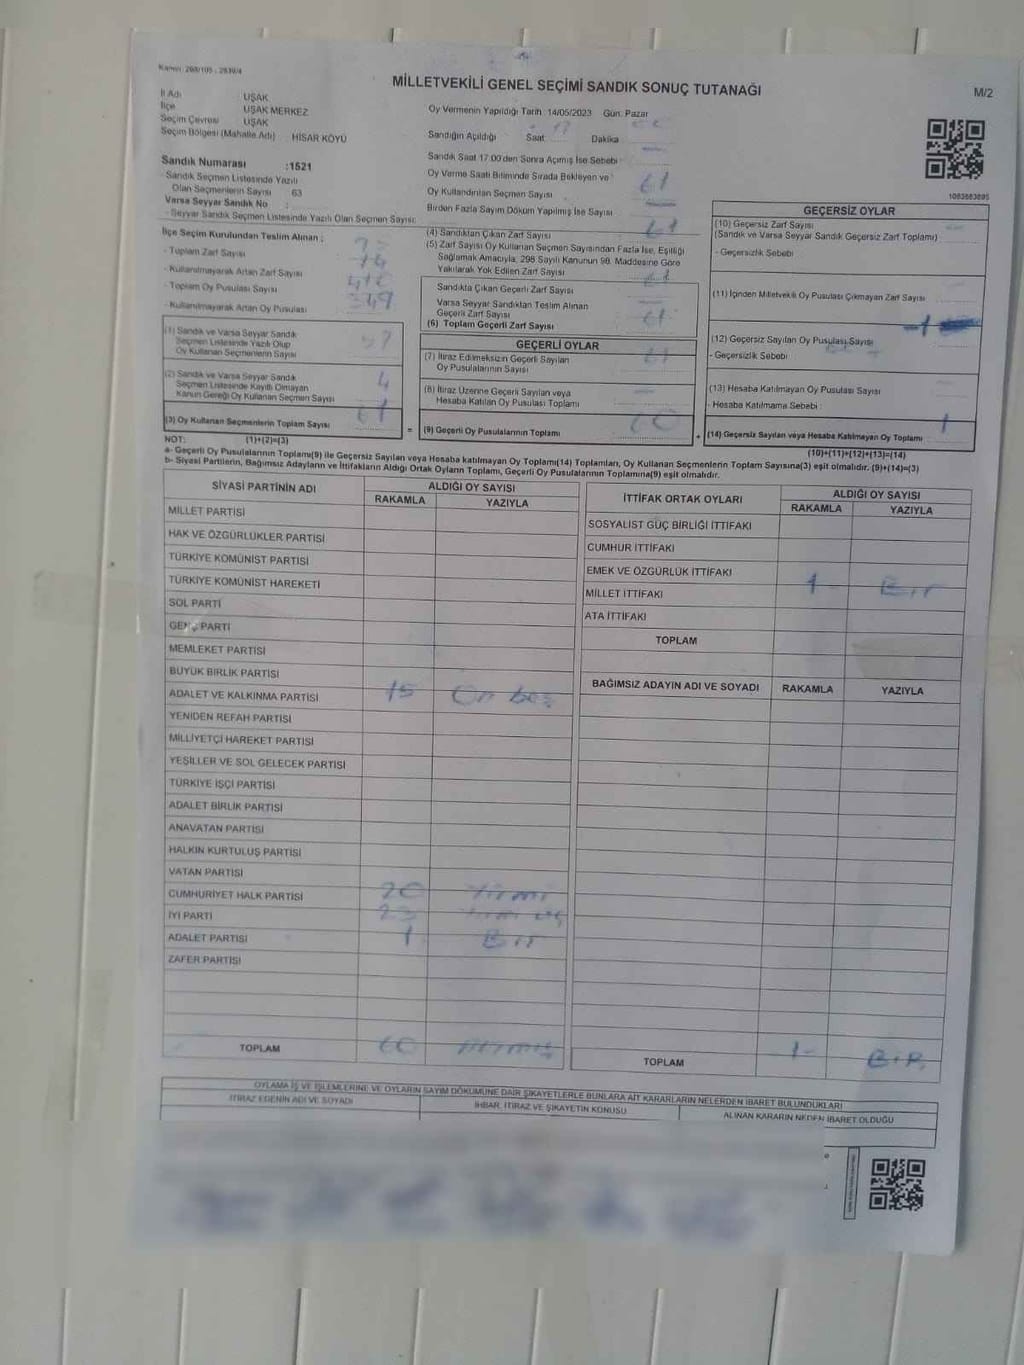 Kanun: 298/105 , 2839/4
MİLLETVEKİLİ GENEL SEÇİMİ SANDIK SONUÇ TUTANAĞI
M/2
İl Adı UŞAK
İlçe UŞAK MERKEZ
Seçim Çevresi UŞAK
Seçim Bölgesi (Mahalle Adı) : HİSAR KÖYÜ
Oy Vermenin Yapıldığı Tarih: 14/05/2023 Gün: Pazar
Sandığın Açıldığı Saat 17 Dakika
Sandık Saat 17:00'den Sonra Açılmış İse Sebebi
Oy Verme Saati Bitiminde Sırada Bekleyen ve
Oy Kullandırılan Seçmen Sayısı 61
Birden Fazla Sayım Döküm Yapılmış İse Sayısı
Sandık Numarası :1521
Sandık Seçmen Listesinde Yazılı
Olan Seçmenlerin Sayısı 63
Varsa Seyyar Sandık No :
- Seyyar Sandık Seçmen Listesinde Yazılı Olan Seçmen Sayısı:
1093683895
İlçe Seçim Kurulundan Teslim Alınan :
- Toplam Zarf Sayısı
- Kullanılmayarak Artan Zarf Sayısı
- Toplam Oy Pusulası Sayısı
- Kullanılmayarak Artan Oy Pusulası 349
(1) Sandık ve Varsa Seyyar Sandık
Seçmen Listesinde Yazılı Olup
Oy Kullanan Seçmenlerin Sayısı 57
(2) Sandık ve Varsa Seyyar Sandık
Seçmen Listesinde Kayıtlı Olmayan
Kanun Gereği Oy Kullanan Seçmen Sayısı 4
(3) Oy Kullanan Seçmenlerin Toplam Sayısı 61 =
(4) Sandıktan Çıkan Zarf Sayısı 61
(5) Zarf Sayısı Oy Kullanan Seçmen Sayısından Fazla İse, Eşitliği
Sağlamak Amacıyla; 298 Sayılı Kanunun 98. Maddesine Göre
Yakılarak Yok Edilen Zarf Sayısı
Sandıkta Çıkan Geçerli Zarf Sayısı 61
Varsa Seyyar Sandıktan Teslim Alınan
Geçerli Zarf Sayısı
(6) Toplam Geçerli Zarf Sayısı 61
GEÇERLİ OYLAR
(7) İtiraz Edilmeksizin Geçerli Sayılan
Oy Pusulalarının Sayısı
(8) İtiraz Üzerine Geçerli Sayılan veya
Hesaba Katılan Oy Pusulası Toplamı
(9) Geçerli Oy Pusulalarının Toplamı 60 +
GEÇERSİZ OYLAR
(10) Geçersiz Zarf Sayısı
(Sandık ve Varsa Seyyar Sandık Geçersiz Zarf Toplamı)
- Geçersizlik Sebebi
(11) İçinden Milletvekili Oy Pusulası Çıkmayan Zarf Sayısı
(12) Geçersiz Sayılan Oy Pusulası Sayısı 1
- Geçersizlik Sebebi
(13) Hesaba Katılmayan Oy Pusulası Sayısı
- Hesaba Katılmama Sebebi :
(14) Geçersiz Sayılan veya Hesaba Katılmayan Oy Toplamı 1
NOT: (1)+(2)=(3)
(10)+(11)+(12)+(13)=(14)
a- Geçerli Oy Pusulalarının Toplamı(9) ile Geçersiz Sayılan veya Hesaba katılmayan Oy Toplamı(14) Toplamları, Oy Kullanan Seçmenlerin Toplam Sayısına(3) eşit olmalıdır. (9)+(14)=(3)
b- Siyasi Partilerin, Bağımsız Adayların ve İttifakların Aldığı Ortak Oyların Toplamı, Geçerli Oy Pusulalarının Toplamına(9) eşit olmalıdır.
SİYASİ PARTİNİN ADI ALDIĞI OY SAYISI
RAKAMLA YAZIYLA
MİLLET PARTİSİ
HAK VE ÖZGÜRLÜKLER PARTİSİ
TÜRKİYE KOMÜNİST PARTİSİ
TÜRKİYE KOMÜNİST HAREKETİ
SOL PARTİ
GENÇ PARTİ
MEMLEKET PARTİSİ
BÜYÜK BİRLİK PARTİSİ
ADALET VE KALKINMA PARTİSİ 15 On beş
YENİDEN REFAH PARTİSİ
MİLLİYETÇİ HAREKET PARTİSİ
YEŞİLLER VE SOL GELECEK PARTİSİ
TÜRKİYE İŞÇİ PARTİSİ
ADALET BİRLİK PARTİSİ
ANAVATAN PARTİSİ
HALKIN KURTULUŞ PARTİSİ
VATAN PARTİSİ
CUMHURİYET HALK PARTİSİ 20 Yirmi
İYİ PARTİ 23 Yirmi üç
ADALET PARTİSİ 1 Bir
ZAFER PARTİSİ
TOPLAM 60 Altmış
İTTİFAK ORTAK OYLARI ALDIĞI OY SAYISI
RAKAMLA YAZIYLA
SOSYALİST GÜÇ BİRLİĞİ İTTİFAKI
CUMHUR İTTİFAKI
EMEK VE ÖZGÜRLÜK İTTİFAKI
MİLLET İTTİFAKI 1 Bir
ATA İTTİFAKI
TOPLAM
BAĞIMSIZ ADAYIN ADI VE SOYADI RAKAMLA YAZIYLA
TOPLAM 1 BİR
OYLAMA İŞ VE İŞLEMLERİNE VE OYLARIN SAYIM DÖKÜMÜNE DAİR ŞİKAYETLERLE BUNLARA AİT KARARLARIN NELERDEN İBARET BULUNDUKLARI
İTİRAZ EDENİN ADI VE SOYADI İHBAR, İTİRAZ VE ŞİKAYETİN KONUSU ALINAN KARARIN NEDEN İBARET OLDUĞU